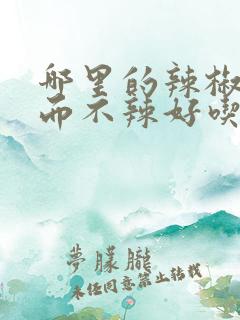 哪里的辣椒
而不辣好喫
夢朦朧
未经同意禁止转载